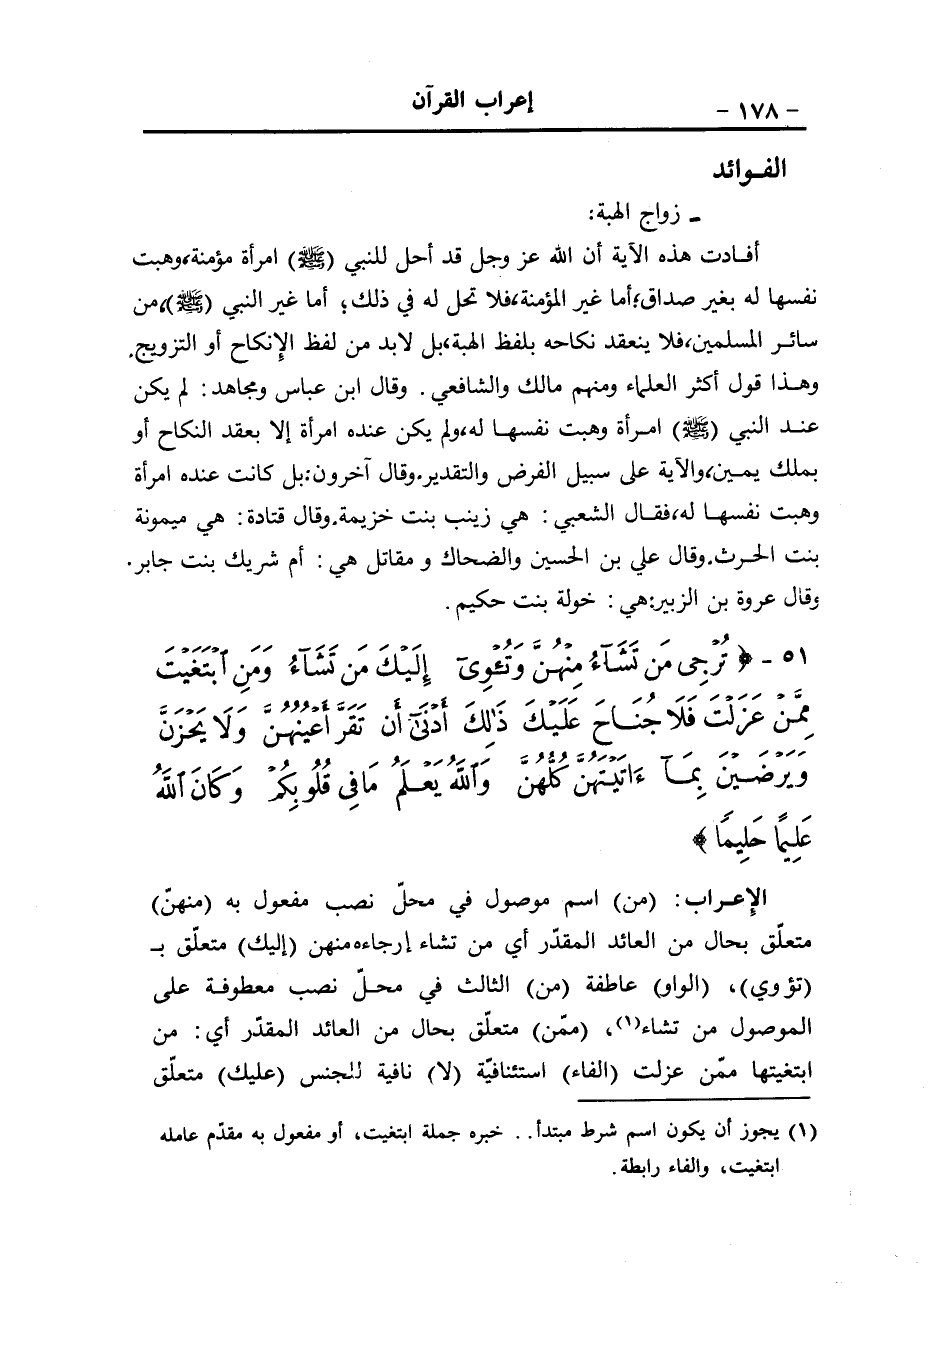 - ١٧٨ - إعراب القرآن
الفـوائد
ـ زواج الهبة:
أفـادت هذه الآية أن الله عز وجل قد أحل للنبي (ﷺ) امرأة مؤمنة،وهبت
نفسها له بغير صداق؛أما غير المؤمنة،فلا تحل له في ذلك؛ أما غير النبي (ﷺ)،من
سائـر المسلمين،فلا ينعقد نكاحه بلفظ الهبة،بل لابد من لفظ الإنكاح أو التزويج.
وهـذا قول أكثر العلماء ومنهم مالك والشافعي. وقال ابن عباس ومجاهد: لم يكن
عنـد النبي (ﷺ) امـرأة وهبت نفسهـا له،ولم يكن عنده امرأة إلا بعقد النكاح أو
بملك يمـين،والآية على سبيل الفرض والتقدير.وقال آخرون:بل كانت عنده امرأة
وهبت نفسهـا له،فقـال الشعبي: هي زينب بنت خزيمة.وقال قتادة: هي ميمونة
بنت الحرث.وقال علي بن الحسين والضحاك و مقاتل هي: أم شريك بنت جابر.
وقال عروة بن الزبير:هي: خولة بنت حكيم.
٥١ - ﴿ تُرْجِى مَن تَشَآءُ مِنْهُنَّ وَتُـْٔوِىٓ إِلَيْكَ مَن تَشَآءُ وَمَنِ ٱبْتَغَيْتَ
مِمَّنْ عَزَلْتَ فَلَا جُنَاحَ عَلَيْكَ ذَٰلِكَ أَدْنَىٰٓ أَن تَقَرَّ أَعْيُنُهُنَّ وَلَا يَحْزَنَّ
وَيَرْضَيْنَ بِمَآ ءَاتَيْتَهُنَّ كُلُّهُنَّ وَٱللَّهُ يَعْلَمُ مَا فِى قُلُوبِكُمْ وَكَانَ ٱللَّهُ
عَلِيمًا حَلِيمًا ﴾
الإعـراب: (من) اسم موصول في محلّ نصب مفعول به (منهنّ)
متعلّق بحال من العائد المقدّر أي من تشاء إرجاءه منهن (إليك) متعلّق بـ
(تؤوي)، (الواو) عاطفة (من) الثالث في محـلّ نصب معطوفـة على
الموصول من تشاء(١)، (ممّن) متعلّق بحال من العائد المقدّر أي: من
ابتغيتها ممّن عزلت (الفاء) استئنافيّة (لا) نافية للجنس (عليك) متعلّق
(١) يجوز أن يكون اسم شرط مبتدأ.. خبره جملة ابتغيت، أو مفعول به مقدّم عامله
ابتغيت، والفاء رابطة.